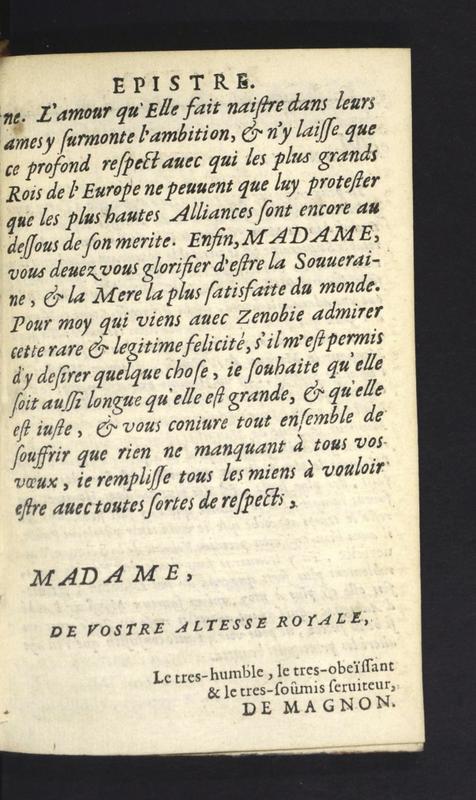 EPISTRE.
ne. L'amour qu'Elle fait naiſtre dans leurs
ames y ſurmonte l'ambition, & n'y laiſſe que
ce profond reſpect auec qui les plus grands
Rois de l'Europe ne peuuent que luy proteſter
que les plus hautes Alliances ſont encore au
deſſous de ſon merite. Enfin, MADAME,
vous deuez vous glorifier d'eſtre la Souuerai-
ne, & la Mere la plus ſatisfaite du monde.
Pour moy qui viens auec Zenobie admirer
cette rare & legitime felicité, s'il m'eſt permis
d'y deſirer quelque choſe, ie ſouhaite qu'elle
ſoit auſſi longue qu'elle eſt grande, & qu'elle
eſt iuſte, & vous coniure tout enſemble de
ſouffrir que rien ne manquant à tous vos
vœux, ie rempliſſe tous les miens à vouloir
eſtre auec toutes ſortes de reſpects,
MADAME,
DE VOSTRE ALTESSE ROYALE,
Le tres-humble, le tres-obeïſſant
& le tres-ſoûmis ſeruiteur,
DE MAGNON.